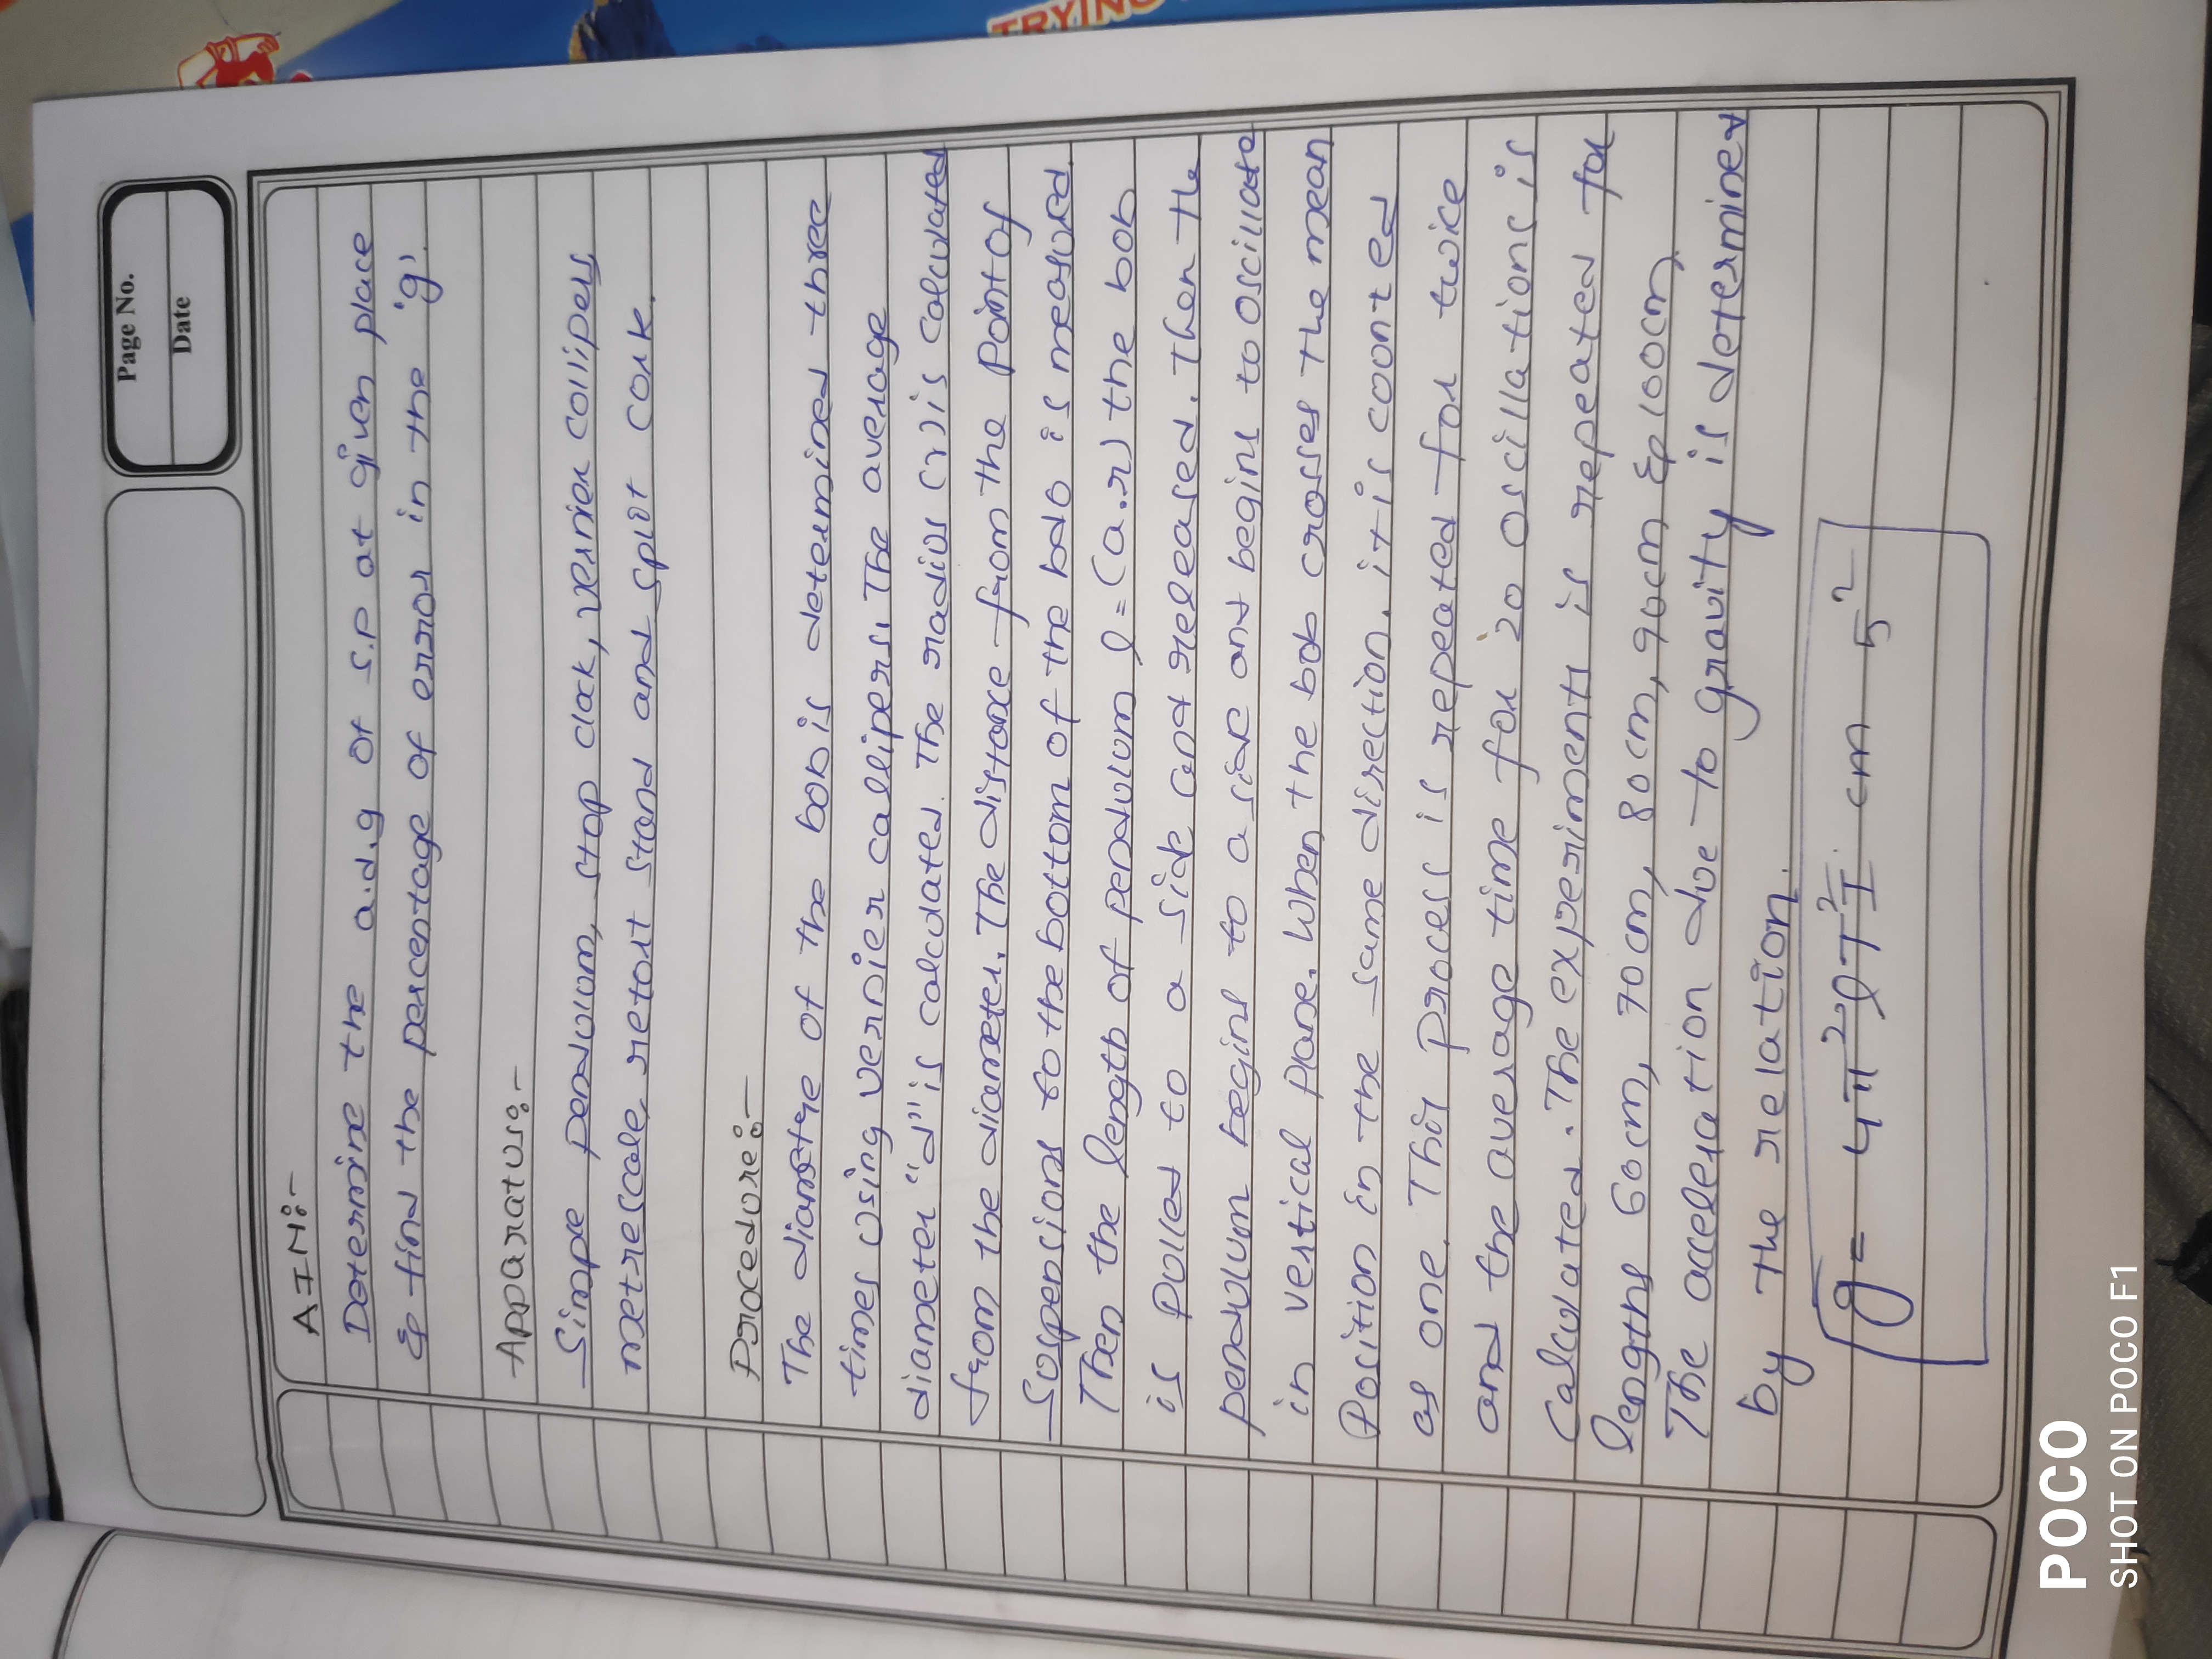 TRYING
Page No.
Date
AIM:-
Determine the a.d.g of s.p at given place
& find the percentage of error in the 'g'.
Apparatus:-
Simpe pendulum, stop clock, vernier collipers
metrescale, retort stand and split cork.
Procedure:-
The diametre of the bob is determined three
times using vernier callipers. The average
diameter "d" is calculated. The radius (r) is calculated
from the diameter. The distance from the point of
Suspensions to the bottom of the bob is measured.
Then the length of pendulum l = (a.r) the bob
is pulled to a side and released. Then the
pendulum begins to a side and begins to oscillate
in vertical plane. When the bob crosses the mean
Position in the same direction, it is counted
as one. This process is repeated for twice
and the average time for 20 oscillations is
calculated. The experiments is repeated for
lengths 60cm, 70cm, 80cm, 90cm & 100cm
The acceleration due to gravity is determined
by the relation.
g = 4π² l T² cm s²
POCO
SHOT ON POCO F1